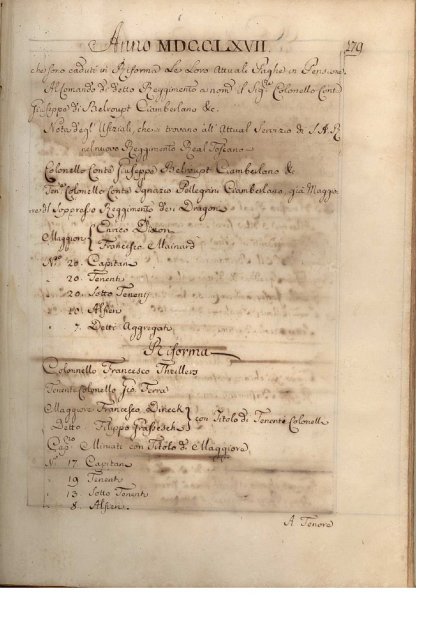 Anno MDCCLXVII.
179
che sono caduti in Riforma le Loro Attuali Paghe in Pensione.
Al Comando di detto Reggimento a nom.ᵗ il Sig.ʳ Colonello Conte
Giuseppe di Belroupt Ciamberlano &c.
Nota degl' Ufiziali, che si trovano all' Attual Servizio di S.A.R.
nel nuovo Reggimento Real Toscano
Colonello Conte Giuseppe Belroupt Ciamberlano &c
Ten.ᵉ Colonello Conte Ignazio Pellegrini Ciamberlano, già Maggio-
re del Soppresso Reggimento de i Dragoni
Maggiori { Enrico Dixon
Francesco Mainard
N.º 20. Capitani
20. Tenenti
20. Sotto Tenenti
10. Alfieri
7. Detti Aggregati
Riforma
Colonnello Francesco Thillers
Tenente Colonello Gio. Terra
Maggiore Francesco Dineck } con Titolo di Tenente Colonello
Detto Filippo
Cap.ⁿᵒ Miniati con Titolo di Maggiore
N.º 17 Capitani
19 Tenenti
13 Sotto Tenenti
8. Alfieri.
A Tenore